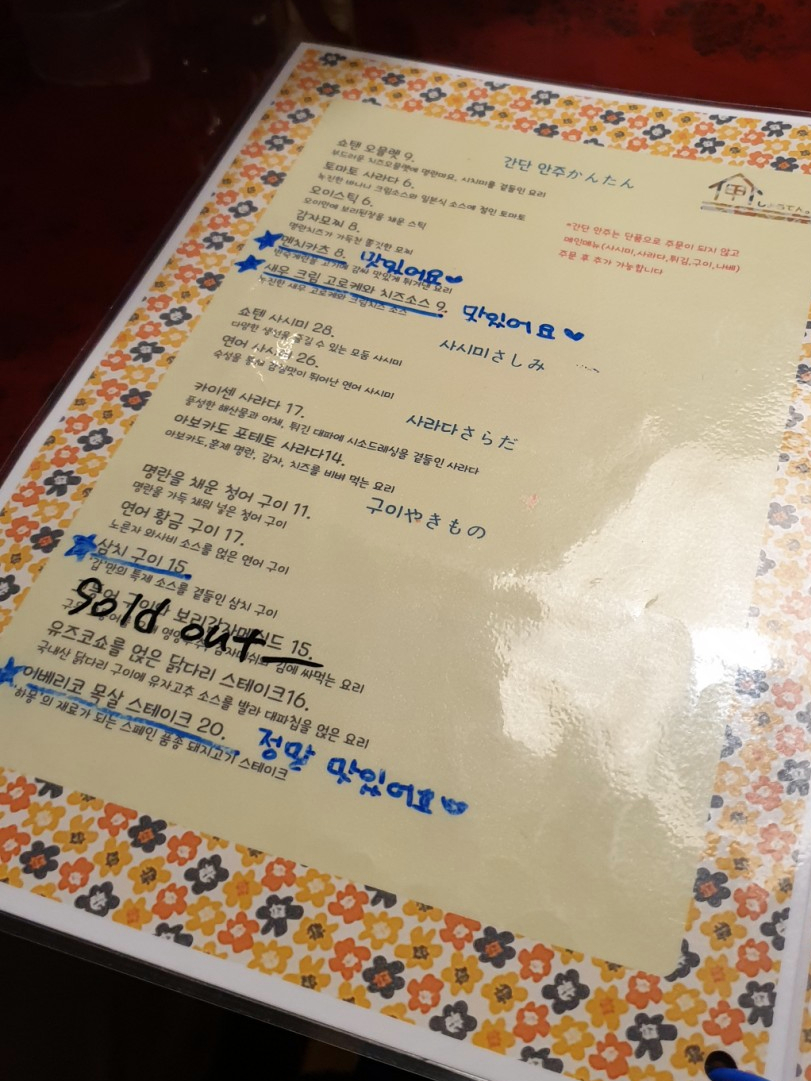 간단 안주かんたん
쇼텐 오믈렛 9.
부드러운 치즈오믈렛에 명란마요, 시치미를 곁들인 요리
토마토 사라다 6.
녹진한 바나나 크림소스와 일본식 소스에 절인 토마토
오이스틱 6.
오이만에 보리된장을 채운 스틱
감자모찌 8.
명란치즈가 가득찬 쫄깃한 모찌
멘치카츠 8. 맛있어요
반숙계란을 고기에 감싸 맛있게 튀겨낸 요리
새우 크림 고로케와 치즈소스 9. 맛있어요
녹진한 새우 고로케와 크림치즈 소스
*간단 안주는 단품으로 주문이 되지 않고
메인메뉴(사시미,사라다,튀김,구이,나베)
주문 후 추가 가능합니다
사시미さしみ
쇼텐 사시미 28.
다양한 생선을 즐길 수 있는 모둠 사시미
연어 사시미 26.
숙성을 통해 감칠맛이 뛰어난 연어 사시미
사라다さらだ
카이센 사라다 17.
풍성한 해산물과 야채, 튀긴 대파에 시소드레싱을 곁들인 사라다
아보카도 포테토 사라다14.
아보카도,훈제 명란, 감자, 치즈를 비벼 먹는 요리
구이やきもの
명란을 채운 청어 구이 11.
명란을 가득 채워 넣은 청어 구이
연어 황금 구이 17.
노른자 와사비 소스를 얹은 연어 구이
삼치 구이 15.
특제 소스를 곁들인 삼치 구이
Sold out
15.
김에 싸먹는 요리
유즈코쇼를 얹은 닭다리 스테이크16.
국내산 닭다리 구이에 유자고추 소스를 발라 대파칩을 얹은 요리
이베리코 목살 스테이크 20.
하몽'의 재료가 되는 스페인 품종 돼지고기 스테이크
정말 맛있어요